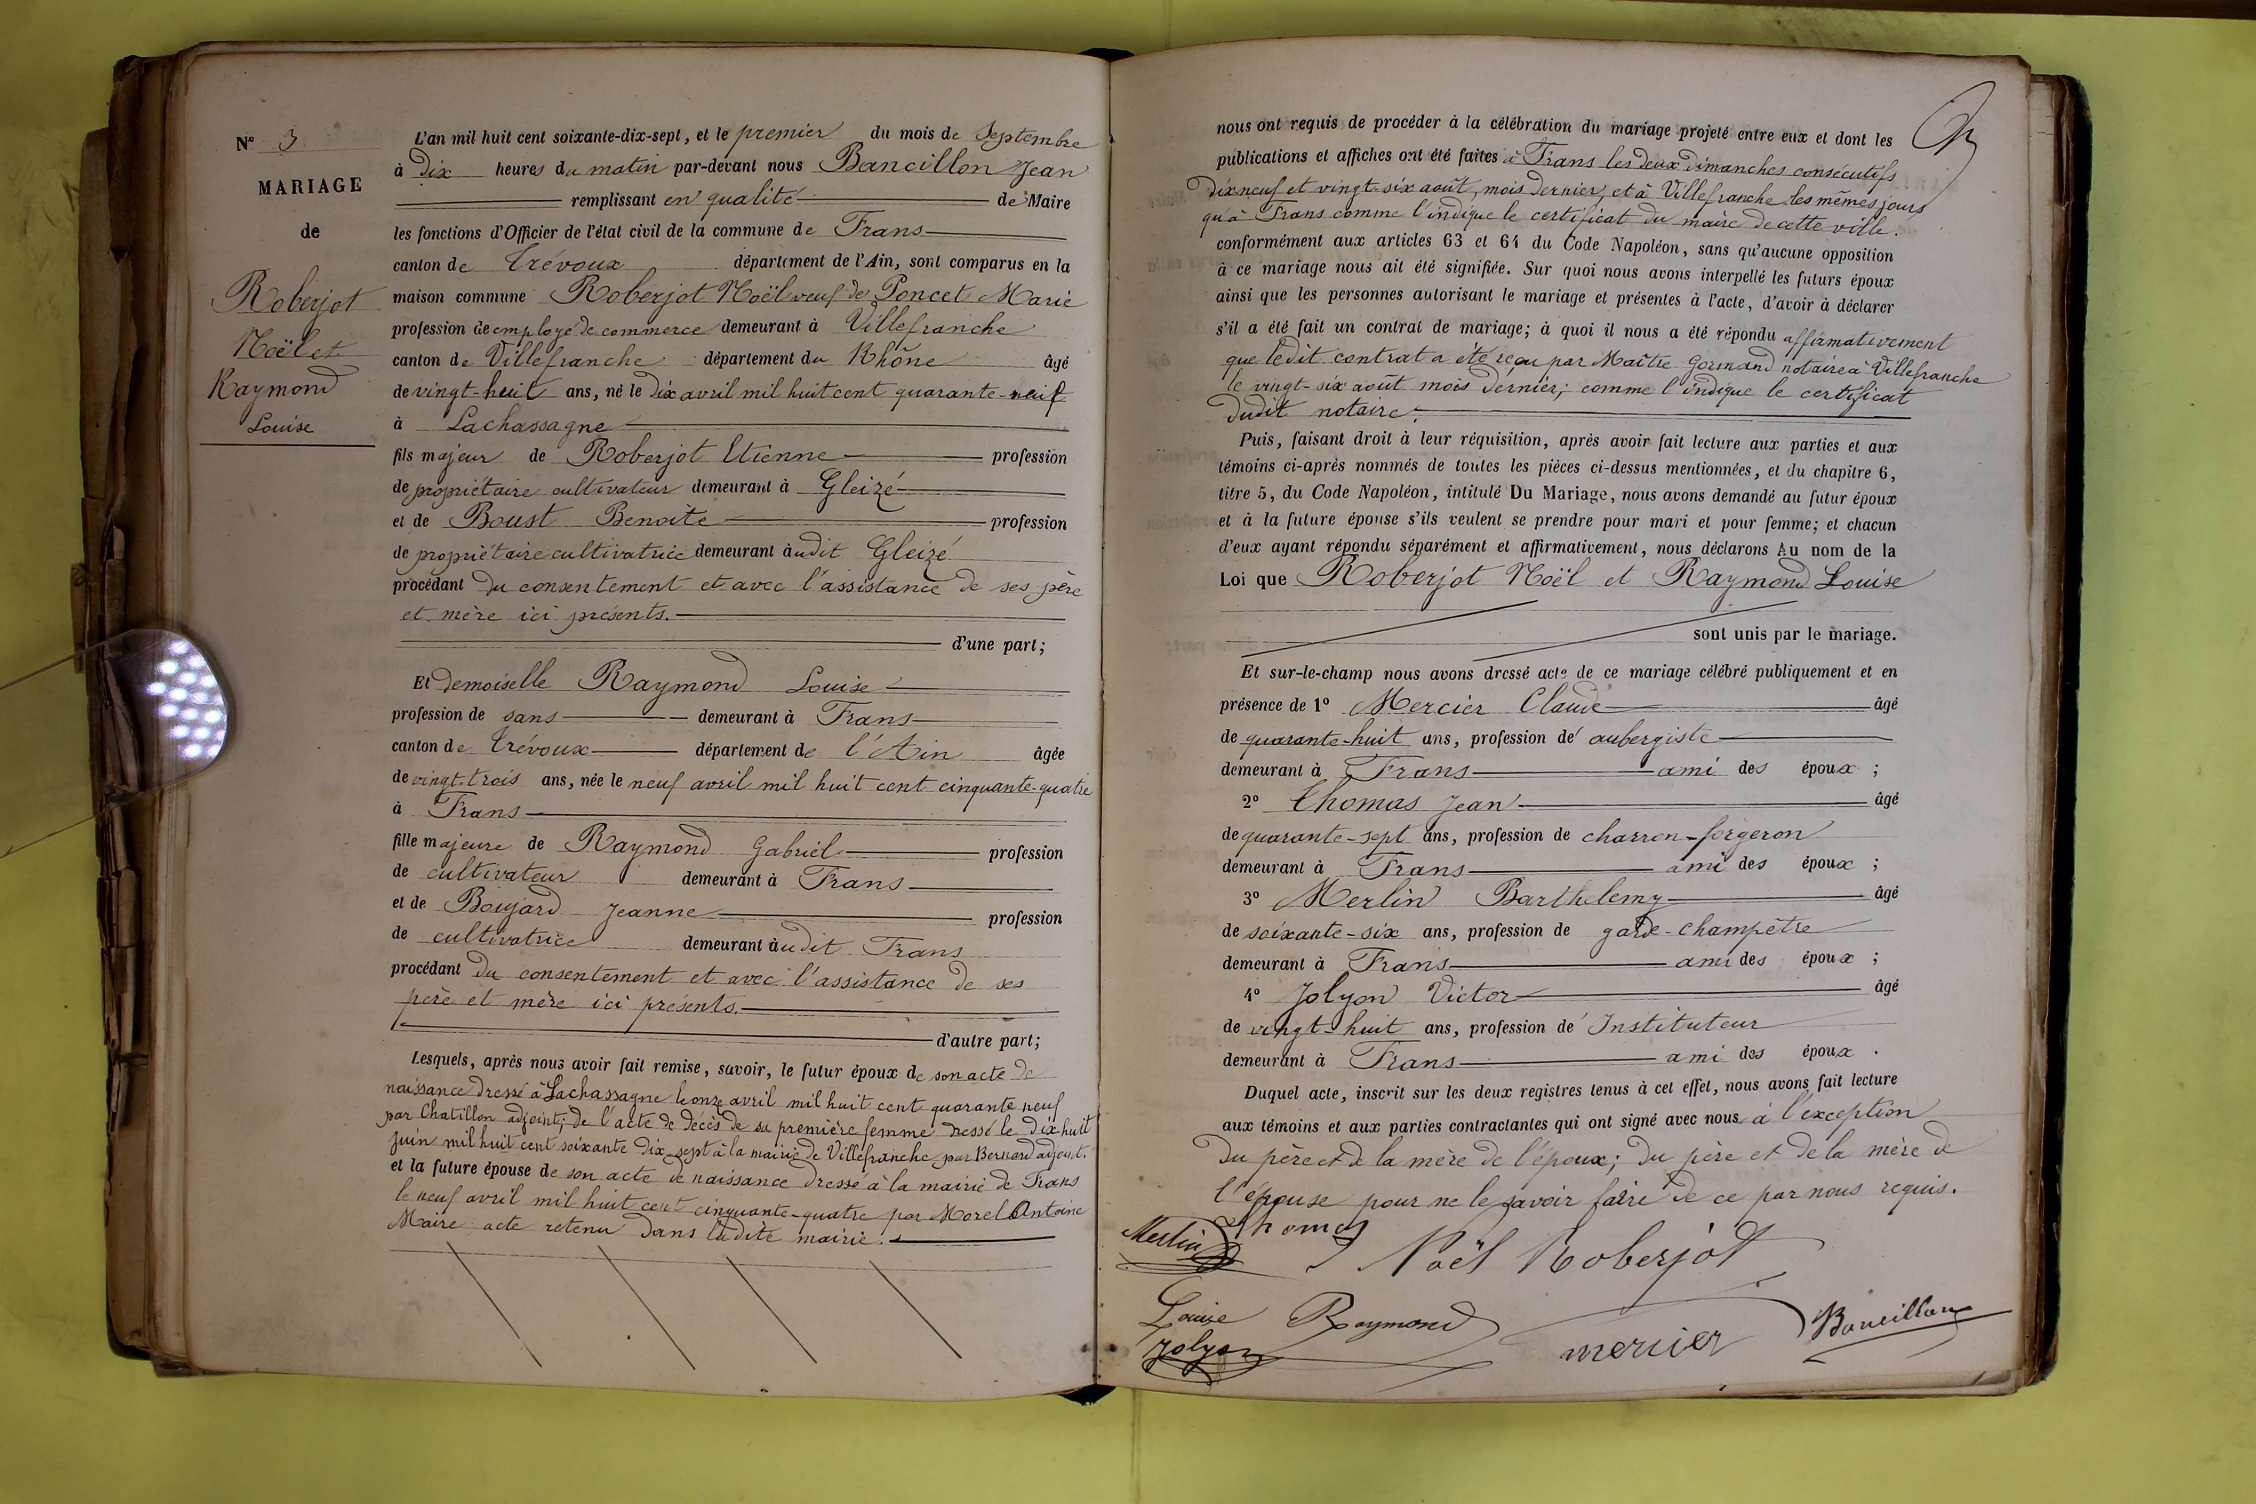 N° 3
MARIAGE
de
Roberjot
Noël et
Raymond
Louise
L'an mil huit cent soixante-dix-sept, et le premier du mois de Septembre
à dix heures du matin par-devant nous Bancillon Jean
remplissant en qualité de Maire
les fonctions d'Officier de l'état civil de la commune de Frans
canton de Trévoux département de l'Ain, sont comparus en la
maison commune Roberjot Noël veuf de Poncet Marie
profession de employé de commerce demeurant à Villefranche
canton de Villefranche département du Rhône âgé
de vingt-huit ans, né le dix avril mil huit cent quarante-neuf
à Lachassagne
fils majeur de Roberjot Etienne profession
de propriétaire cultivateur demeurant à Gleizé
et de Boust Benoite profession
de propriétaire cultivatrice demeurant audit Gleizé
procédant du consentement et avec l'assistance de ses père
et mère ici présents.
d'une part;
Et demoiselle Raymond Louise
profession de sans demeurant à Frans
canton de Trévoux département de l'Ain âgée
de vingt-trois ans, née le neuf avril mil huit cent cinquante-quatre
à Frans
fille majeure de Raymond Gabriel profession
de cultivateur demeurant à Frans
et de Boujard Jeanne profession
de cultivatrice demeurant audit Frans
procédant du consentement et avec l'assistance de ses
père et mère ici présents.
d'autre part;
Lesquels, après nous avoir fait remise, savoir, le futur époux de son acte de
naissance dressé à Lachassagne le onze avril mil huit cent quarante neuf
par Chatillon adjoint; de l'acte de décès de sa première femme dressé le dix-huit
juin mil huit cent soixante dix-sept à la mairie de Villefranche par Bernard adjoint.
et la future épouse de son acte de naissance dressé à la mairie de Frans
le neuf avril mil huit cent cinquante-quatre par Morel Antoine
Maire acte retenu dans ladite mairie.
nous ont requis de procéder à la célébration du mariage projeté entre eux et dont les
publications et affiches ont été faites à Frans les deux dimanches consécutifs
dix neuf et vingt-six août, mois dernier, et à Villefranche les mêmes jours
qu'à Frans comme l'indique le certificat du maire de cette ville.
conformément aux articles 63 et 64 du Code Napoléon, sans qu'aucune opposition
à ce mariage nous ait été signifiée. Sur quoi nous avons interpellé les futurs époux
ainsi que les personnes autorisant le mariage et présentes à l'acte, d'avoir à déclarer
s'il a été fait un contrat de mariage; à quoi il nous a été répondu affirmativement
que ledit contrat a été reçu par Maître Gormand notaire à Villefranche
le vingt-six août mois dernier; comme l'indique le certificat
dudit notaire.
Puis, faisant droit à leur réquisition, après avoir fait lecture aux parties et aux
témoins ci-après nommés de toutes les pièces ci-dessus mentionnées, et du chapitre 6,
titre 5, du Code Napoléon, intitulé Du Mariage, nous avons demandé au futur époux
et à la future épouse s'ils veulent se prendre pour mari et pour femme; et chacun
d'eux ayant répondu séparément et affirmativement, nous déclarons Au nom de la
Loi que Roberjot Noël et Raymond Louise
sont unis par le mariage.
Et sur-le-champ nous avons dressé acte de ce mariage célébré publiquement et en
présence de 1° Mercier Claude âgé
de quarante-huit ans, profession de aubergiste
demeurant à Frans ami des époux ;
2° Thomas Jean âgé
de quarante-sept ans, profession de charron-forgeron
demeurant à Frans ami des époux ;
3° Merlin Barthelemy âgé
de soixante-six ans, profession de garde-champêtre
demeurant à Frans ami des époux ;
4° Jolyon Victor âgé
de vingt-huit ans, profession de Instituteur
demeurant à Frans ami des époux .
Duquel acte, inscrit sur les deux registres tenus à cet effet, nous avons fait lecture
aux témoins et aux parties contractantes qui ont signé avec nous à l'exception
du père et de la mère de l'époux; du père et de la mère de
l'épouse pour ne le savoir faire de ce par nous requis.
Merlin Thomas Noël Roberjot
Louise Raymond Bancillon
Jolyon mercier